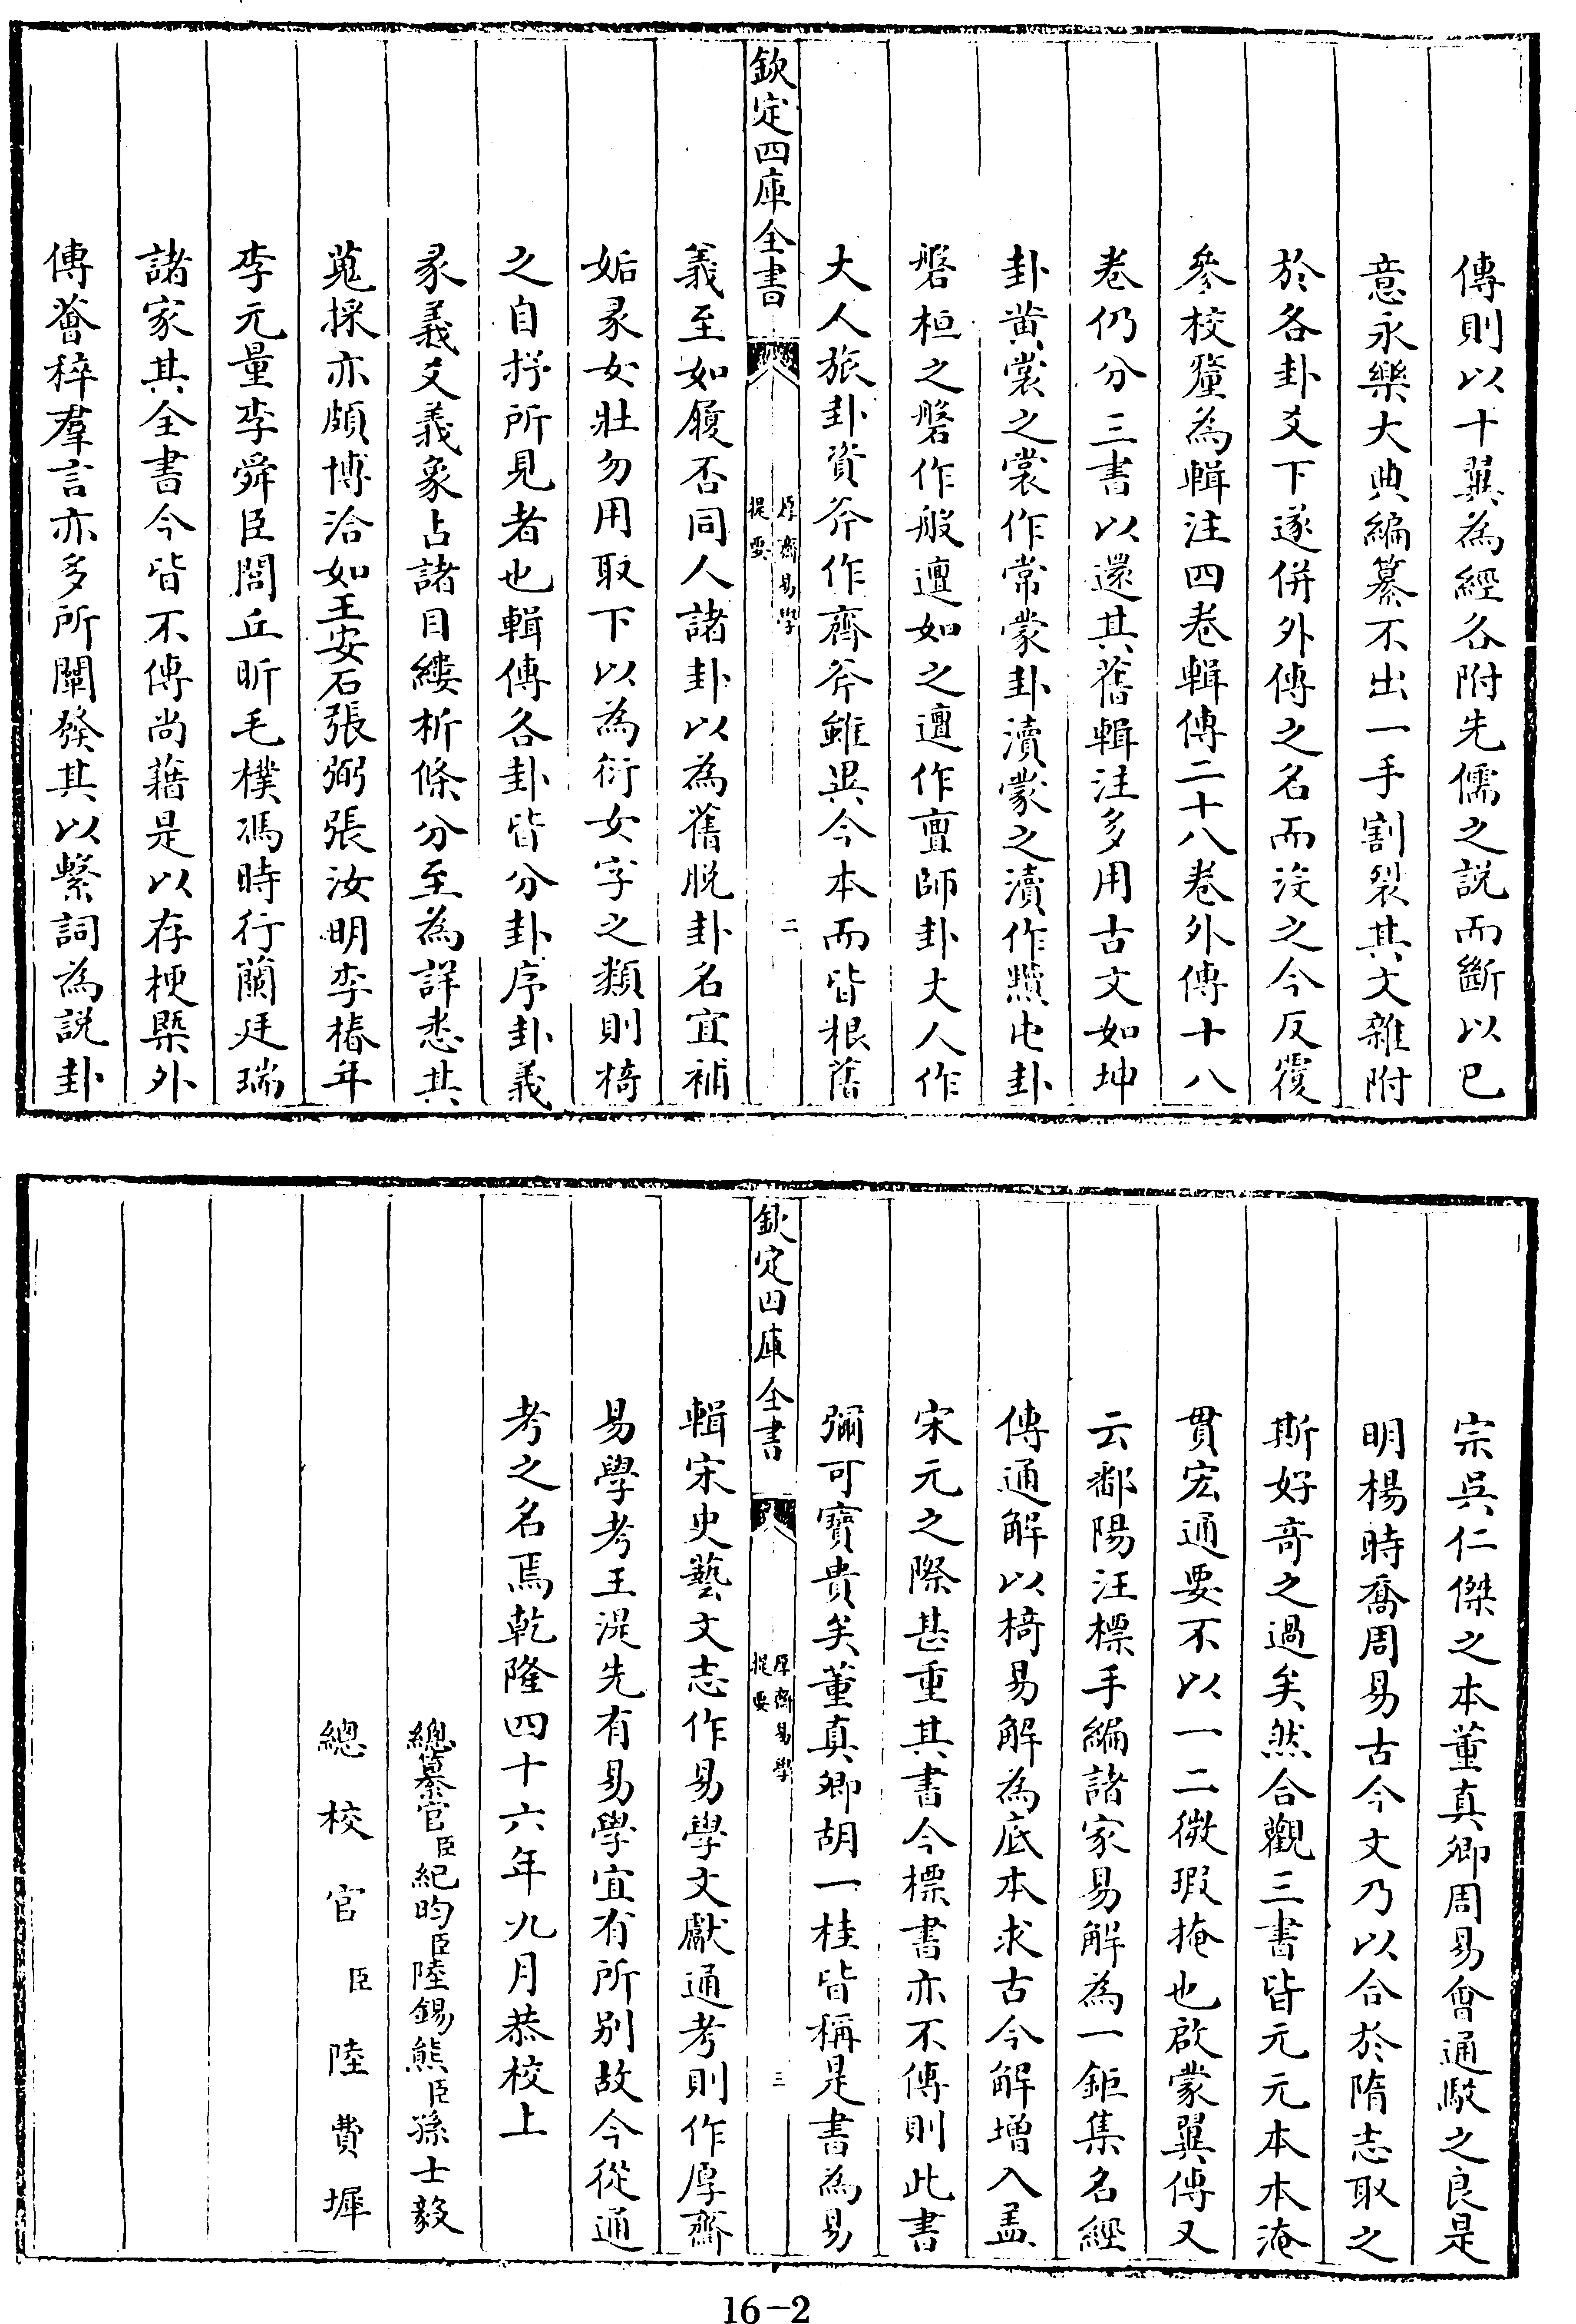 傳則以十翼為經各附先儒之説而斷以已
意永樂大典編纂不出一手割裂其文雜附
於各卦爻下遂併外傳之名而沒之今反覆
參校釐為輯注四卷輯傳二十八卷外傳十八
卷仍分三書以還其舊輯注多用古文如坤
卦黄裳之裳作常蒙卦瀆蒙之瀆作黷屯卦
磐桓之磐作般邅如之邅作亶師卦丈人作
大人旅卦資斧作齊斧雖異今本而皆根舊
欽定四庫全書
厚齋易學
提要
二
義至如履否同人諸卦以為舊脱卦名宜補
姤彖女壯勿用取下以為衍女字之類則椅
之自抒所見者也輯傳各卦皆分卦序卦義
彖義爻義象占諸目縷析條分至為詳悉其
蒐採亦頗博洽如王安石張弼張汝明李椿年
李元量李舜臣閭丘昕毛樸馮時行蘭廷瑞
諸家其全書今皆不傳尚藉是以存梗槩外
傳薈稡羣言亦多所闡發其以繫詞為説卦
宗吳仁傑之本董真卿周易會通駁之良是
明楊時喬周易古今文乃以合於隋志取之
斯好奇之過矣然合觀三書皆元元本本淹
貫宏通要不以一二微瑕掩也啟蒙翼傳又
云鄱陽汪標手編諸家易解為一鉅集名經
傳通解以椅易解為底本求古今解增入盖
宋元之際甚重其書今標書亦不傳則此書
彌可寶貴矣董真卿胡一桂皆稱是書為易
欽定四庫全書
厚齋易學
提要
三
輯宋史藝文志作易學文獻通考則作厚齋
易學考王湜先有易學宜有所别故今從通
考之名焉乾隆四十六年九月恭校上
總纂官臣紀昀臣陸錫熊臣孫士毅
總校官臣陸費墀
16-2